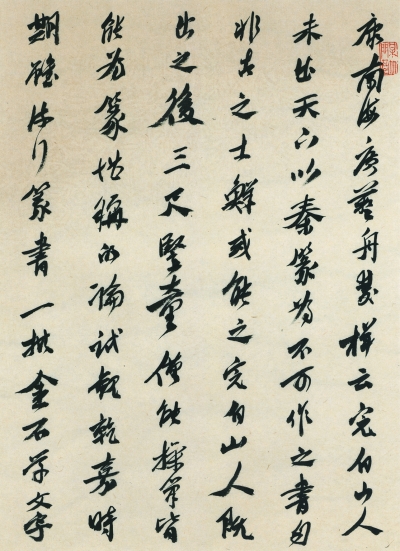 康南海廣藝舟雙楫云完白山人
未出天下以秦篆为不可作之書自
非古之士鮮或能之完白山人既
出之後三尺竪童僅能操筆皆
能为篆堪稱的論試觀乾嘉時
期確流行篆書一批金石学文字